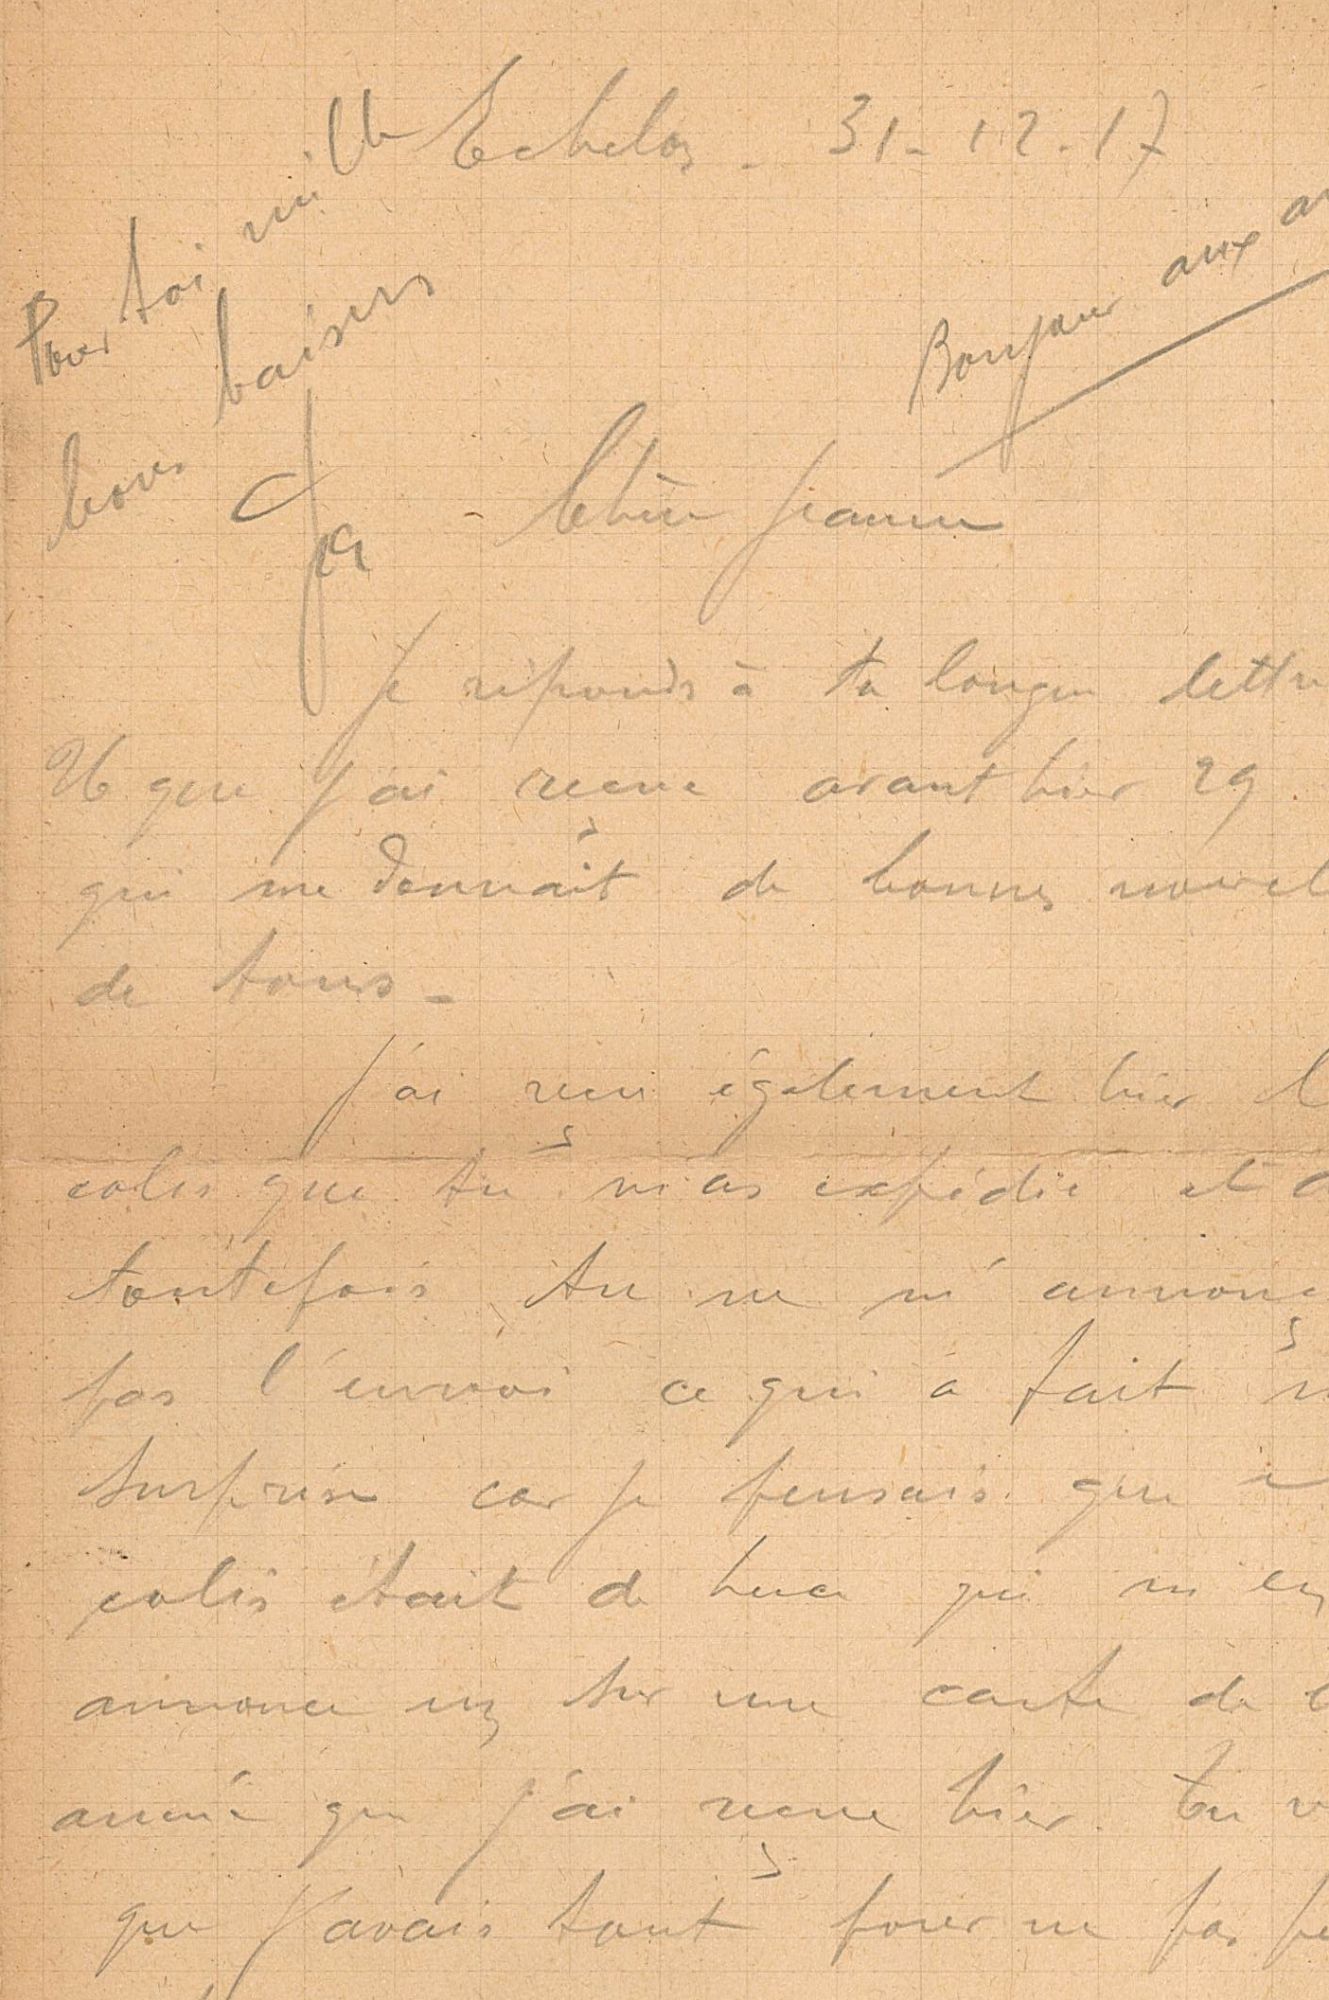 Echelon. 31-12-17
Pour toi mille
bons baisers
Bonjour aux
Chère Jeanne
Je réponds à ta longue lettre
26 que j'ai reçue avant hier 29
qui me donnait de bonnes nouvel
de tous -
J'ai reçu également hier l
colis que tu m'as expédié et
toutefois tu ne m'annonç
pas l'envoi ce qui a fait
surprise car je pensais que
colis était de qui m'en
annonce un sur une carte de
année que j'ai reçue hier. Tu v
que j'avais tout pour ne pas